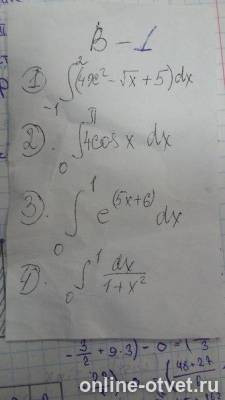 В - 1
1) ∫₋₁² (4x² - √x + 5) dx
2). ∫₀^π 4cos x dx
3). ∫₀¹ e^(5x+6) dx
4). ∫₀¹ dx/(1+x²)
- 3/2 + 9·3) - 0 =
48+27
online-otvet.ru